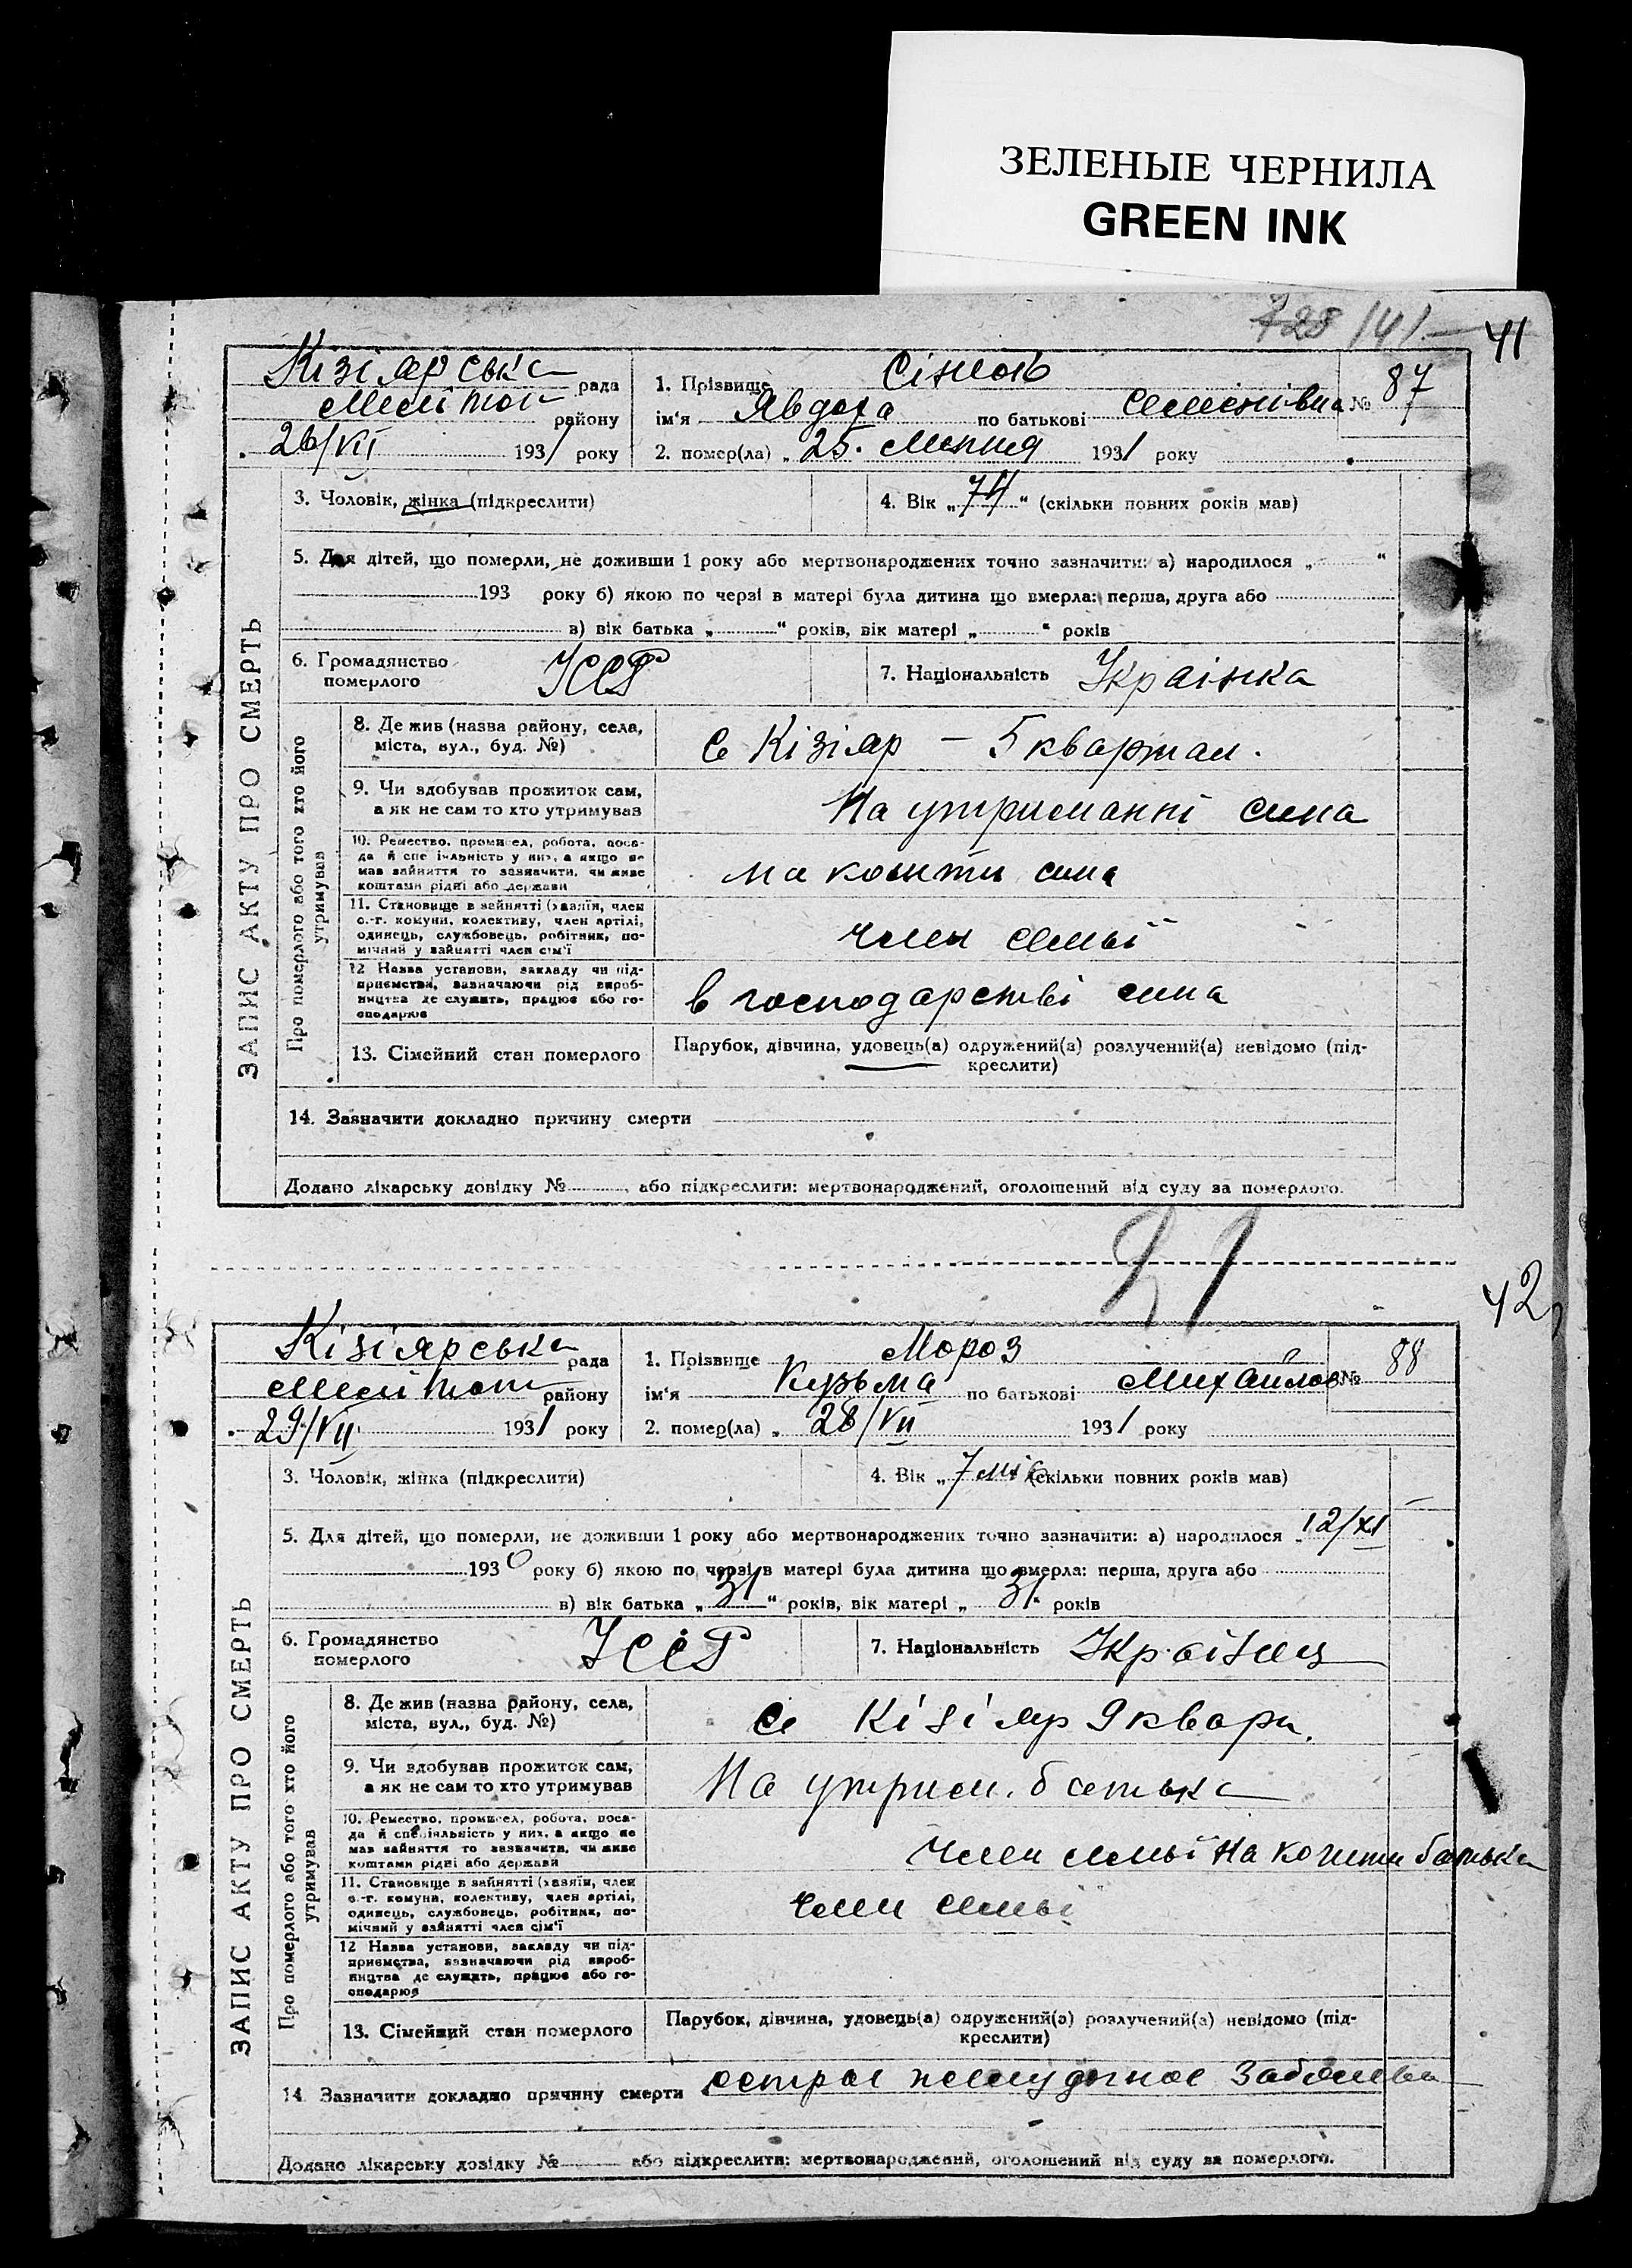 ЗЕЛЕНЫЕ ЧЕРНИЛА
GREEN INK
728 141
41
Кізіярська рада
Мелітоп району
26/VII 1931 року
1. Прізвище
ім'я Явдоха по батькові Семенівна № 87
2. помер(ла) „ 25. Липня 1931 року
3. Чоловік, жінка (підкреслити)
4. Вік „74“ (скільки повних років мав)
5. Для дітей, що померли, не доживши 1 року або мертвонароджених точно зазначити: а) народилося „ “
193 року б) якою по черзі в матері була дитина що вмерла: перша, друга або
в) вік батька „ “ років, вік матері „ “ років
6. Громадянство померлого УССР
7. Національність Українка
ЗАПИС АКТУ ПРО СМЕРТЬ
Про померлого або того хто його утримував
8. Де жив (назва району, села,
міста, вул., буд. №)
с Кізіяр – 5 квартал.
9. Чи здобував прожиток сам,
а як не сам то хто утримував
На утриманні сина
10. Ремество, промисел, робота, поса-
да й спеціяльність у них, а якщо не
мав зайняття то зазначити, чи живе
коштами рідні або держави
на кошти сина
11. Становище в зайнятті (хазяїн, член
с.-г. комуни, колективу, член артілі,
одинець, службовець, робітник, по-
мічний у зайнятті член сім'ї
член семьї
12 Назва установи, закладу чи під-
приємства, зазначаючи рід вироб-
ництва де служить, працює або го-
сподарює
в господарстві сина
13. Сімейний стан померлого
Парубок, дівчина, удовець(а) одружений(а) розлучений(а) невідомо (під-
креслити)
14. Зазначити докладно причину смерти
Додано лікарську довідку № , або підкреслити: мертвонароджений, оголошений від суду за померлого.
42
Кізіярська рада
Мелітоп району
29/VII 1931 року
1. Прізвище Мороз
ім'я Кузьма по батькові Михайлов № 88
2. помер(ла) „ 28/VII 1931 року
3. Чоловік, жінка (підкреслити)
4. Вік „ 7 міс (скільки повних років мав)
5. Для дітей, що померли, не доживши 1 року або мертвонароджених точно зазначити: а) народилося „ 12/XI
1930 року б) якою по черзі в матері була дитина що вмерла: перша, друга або
в) вік батька „ 31 “ років, вік матері „ 31 “ років
6. Громадянство померлого УССР
7. Національність Українец
ЗАПИС АКТУ ПРО СМЕРТЬ
Про померлого або того хто його утримував
8. Де жив (назва району, села,
міста, вул., буд. №)
с Кізіяр 9 кварт.
9. Чи здобував прожиток сам,
а як не сам то хто утримував
На утрим. батька
10. Ремество, промисел, робота, поса-
да й спеціяльність у них, а якщо не
мав зайняття то зазначити, чи живе
коштами рідні або держави
член семьї на кошти батька
11. Становище в зайнятті (хазяїн, член
с.-г. комуни, колективу, член артілі,
одинець, службовець, робітник, по-
мічний у зайнятті член сім'ї
член семьї
12 Назва установи, закладу чи під-
приємства, зазначаючи рід вироб-
ництва де служить, працює або го-
сподарює
13. Сімейний стан померлого
Парубок, дівчина, удовець(а) одружений(а) розлучений(а) невідомо (під-
креслити)
14 Зазначити докладно причину смерти острое желудочное
Додано лікарську довідку № або підкреслити: мертвонароджений, оголошений від суду за померлого.